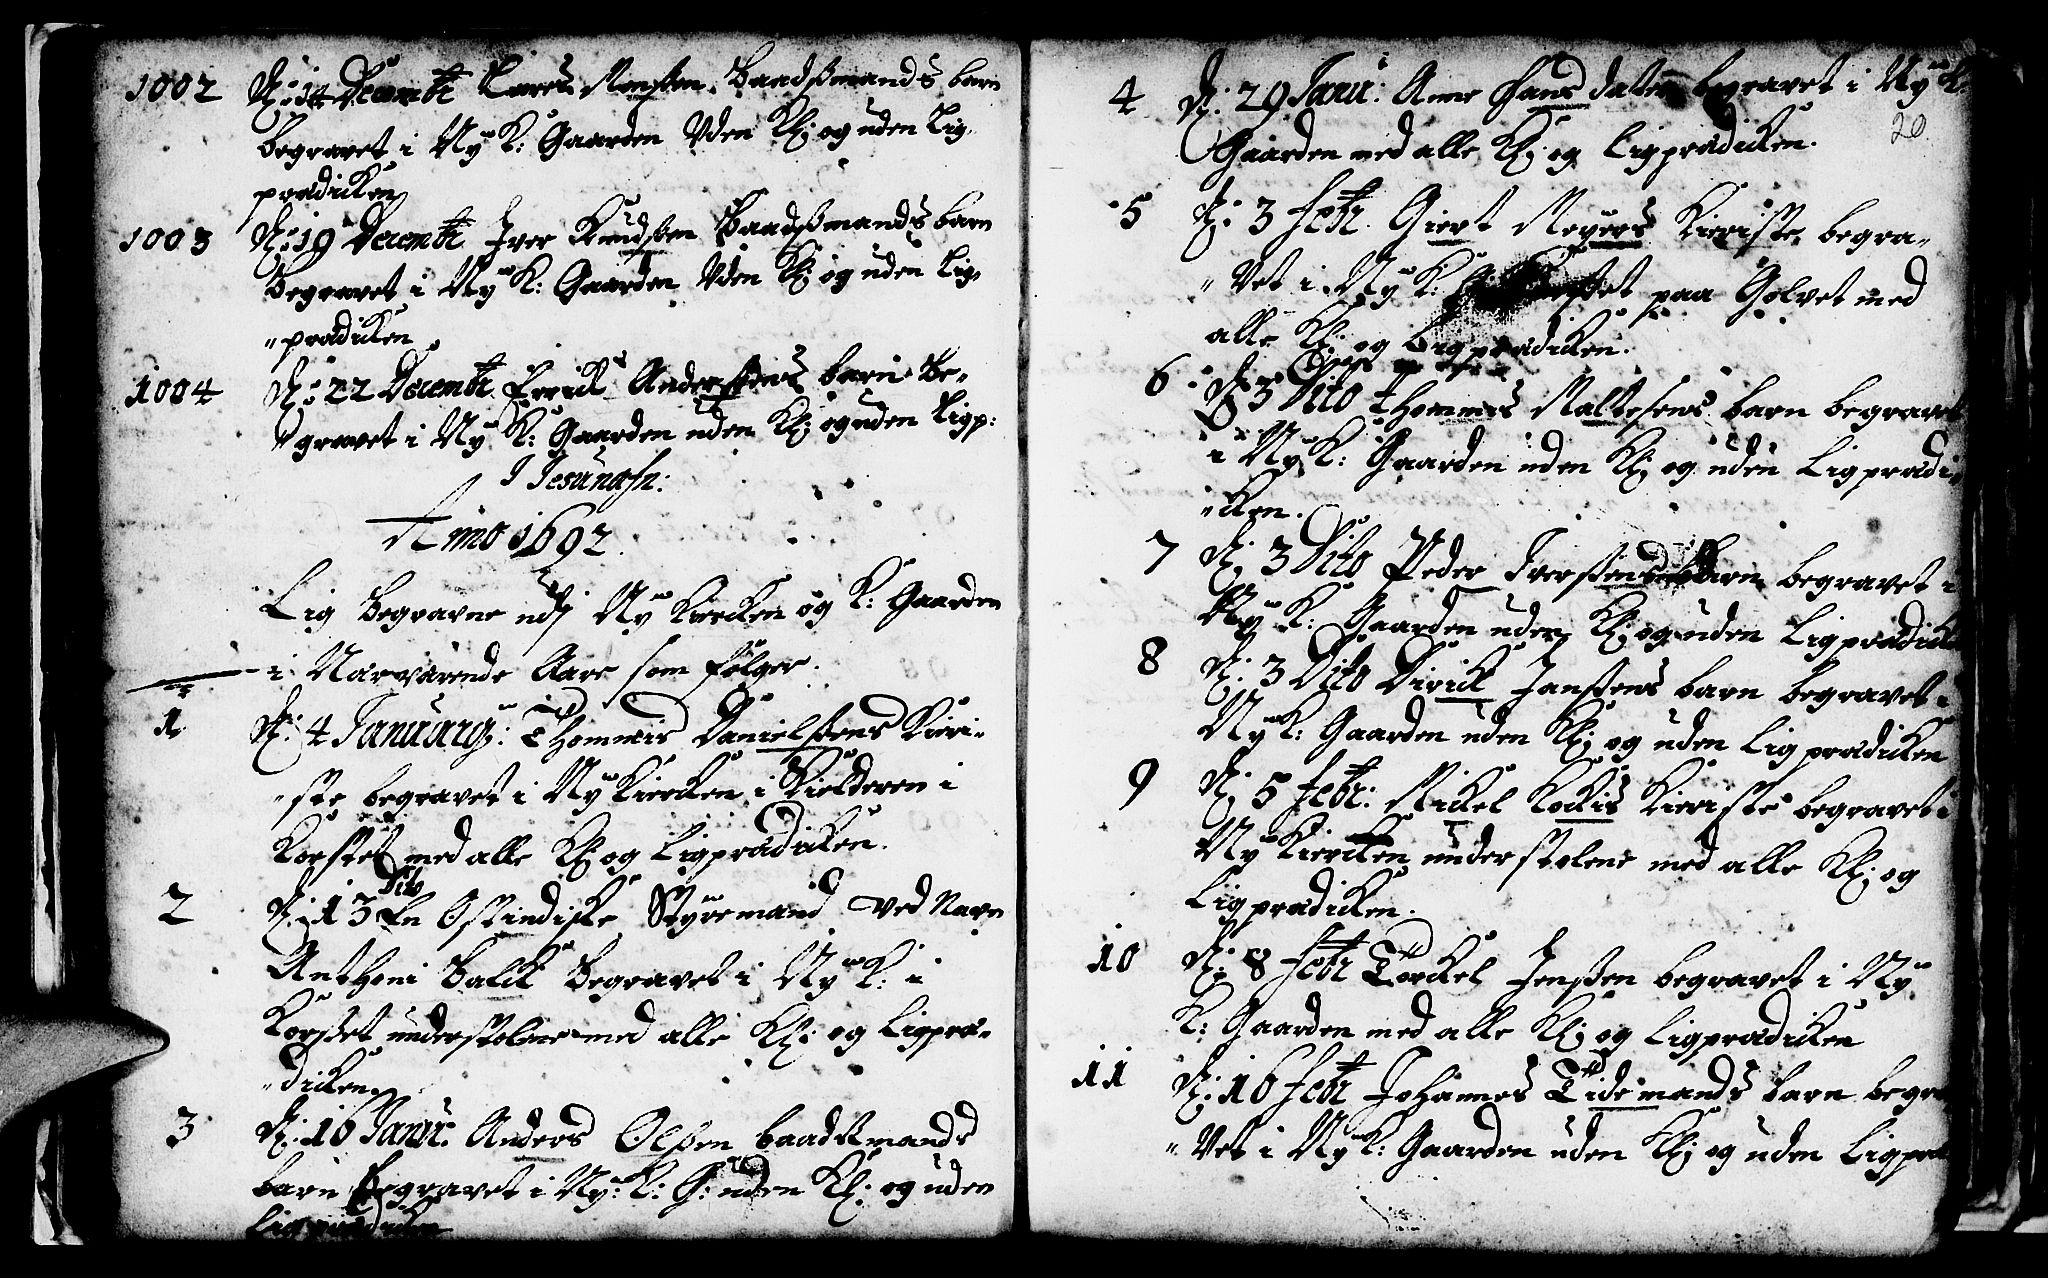 1002 D: 14 Decembr Lars Monsen Baadsmands barn
begravet i Ny K: Gaarden Uden Kl: og uden Lig,
prædicken
1003 D: 19 Decembr Iver Knudsen Baadsmands barn
Begravet i Ny K: Gaarden Uden Kl: og uden Lig,
„prædicken
1004 D: 22 Decembr Erick Andersens barn Be„
„gravet i Ny K: Gaarden uden Kl: og uden Ligp:
I Jesu nafn:
Anno 1692.
Lig Begravne udj Ny Kircken og K: Gaarden
i Nærværende Aare som følger.
1 D: 4 Januarij: Thommis Danielsens Kieri„
„ste begravet i Ny Kiercken i Kielderen i
Korset med alle Kl: og Ligprædicken.
2 D: 13 Dito En Ostindiske Styremand ved Navn
Anthoni Balck Begravet i Ny K: i
Korset under stolene med alle Kl: og Ligpræ„
„dicken
3 D: 16 Janu: Anders Olsen baadsmands
barn Begravet i Ny: K: G: uden Kl: og uden
Ligprædicken
20
4 D: 29 Janu: Anne Hans dater begravet i Ny K:
Gaarden med alle Kl: og Ligprædicken.
5 D: 3 Febr. Giert Meyers Kieriste begra„
„vet i Ny K: paa Golvet med
alle Kl: og Ligprædicken.
6 D: 3 Dito Thommis Maltesens barn begravet
i Ny K: Gaarden uden Kl: og uden Ligprædi„
„cken.
7 D: 3 Dito Peder Iversens barn begravet i
Ny K: Gaarden uden Kl: og uden Ligprædick
8 D: 3 Dito Dirick Jansens barn begravet i
Ny K: Gaarden uden Kl: og uden Ligprædicken
9 D: 5 Febr: Mickel Kockis Kieriste begravet i
Ny Kiercken under stolene med alle Kl: og
Ligprædicken.
10 D: 8 Febr Torckel Jensen begravet i Ny
K: Gaarden med alle Kl: og Ligprædicken
11 D: 16 Febr Johannes Tidemands barn begra
„vet i Ny K: Gaarden uden Kl: og uden Ligpræ